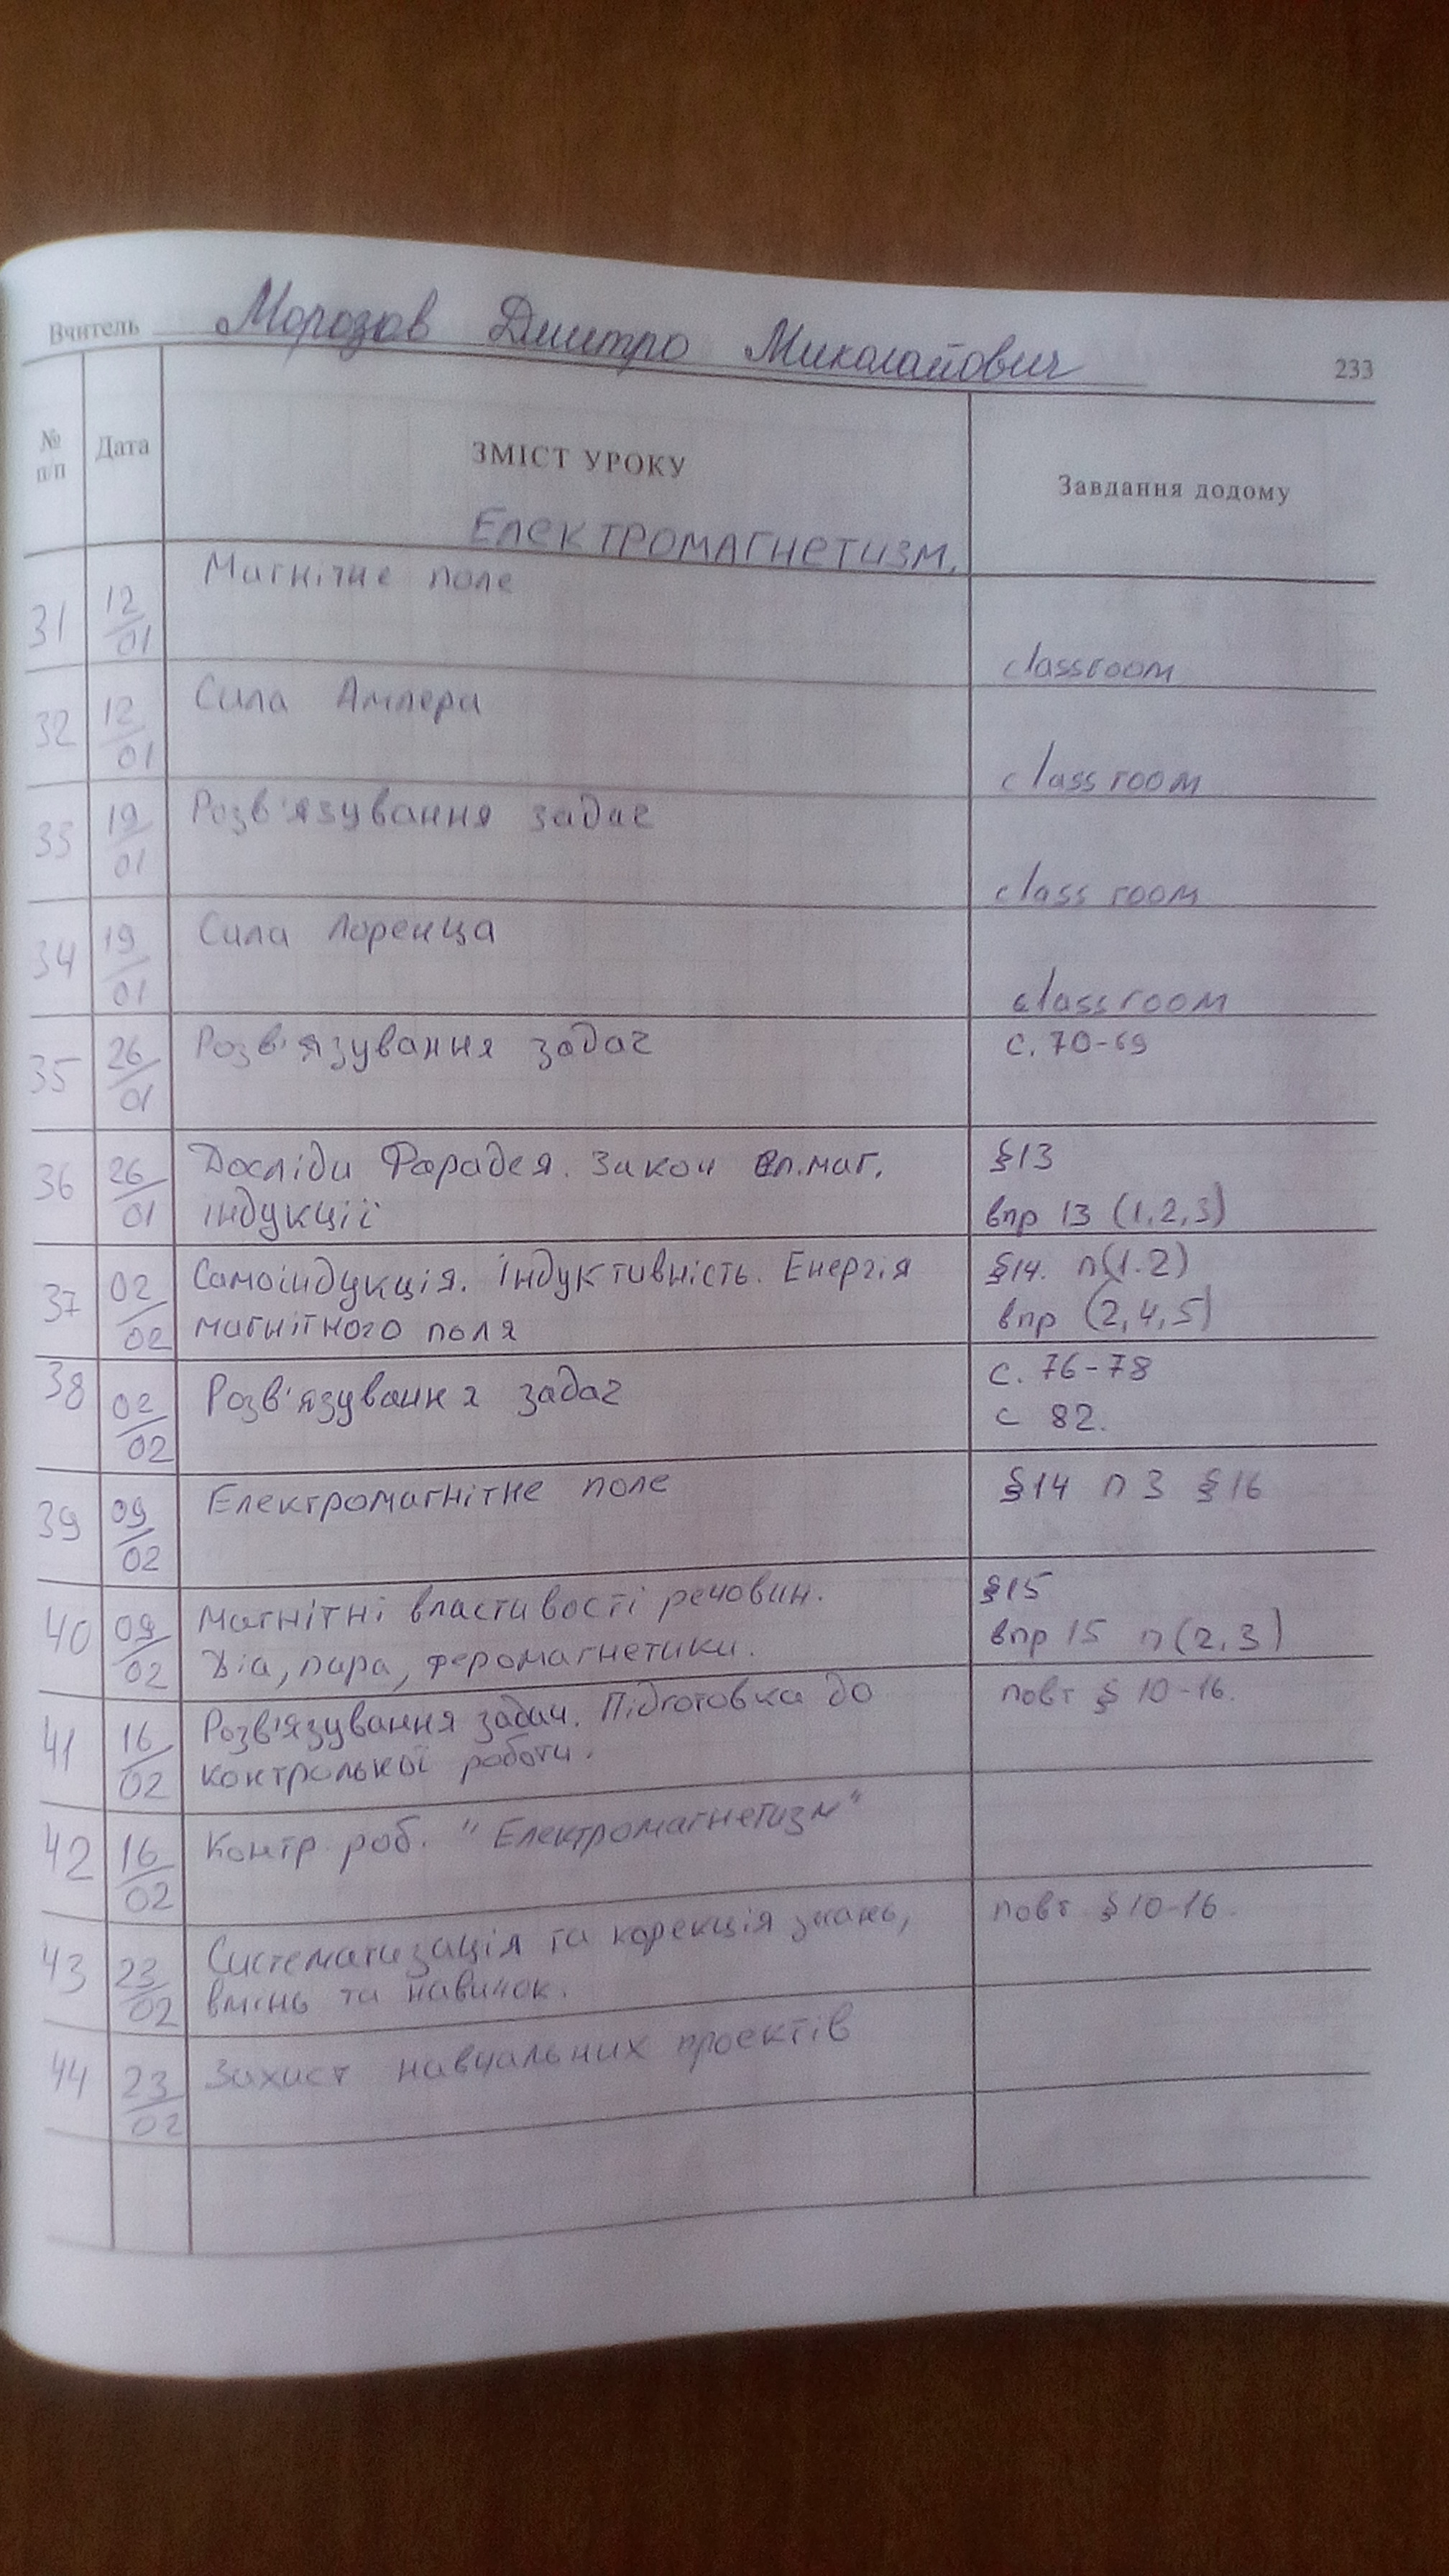 Вчитель Морозов Дмитро Миколайович
233
№ п/п Дата ЗМІСТ УРОКУ Завдання додому
Електромагнетизм.
31 12/01 Магнітне поле classroom
32 12/01 Сила Ампера classroom
33 19/01 Розв'язування задач class room
34 19/01 Сила Лоренца classroom
35 26/01 Розв'язування задач с. 70-69
36 26/01 Досліди Фарадея. Закон ел.маг. §13
індукції впр 13 (1,2,3)
37 02/02 Самоіндукція. Індуктивність. Енергія §14. п(1.2)
магнітного поля впр (2,4,5)
38 02/02 Розв'язування задач с. 76-78
с 82.
39 09/02 Електромагнітне поле §14 п 3 §16
40 09/02 Магнітні властивості речовин. §15
Діа, пара, феромагнетики. впр 15 п(2,3)
41 16/02 Розв'язування задач. Підготовка до повт § 10-16.
контрольної роботи.
42 16/02 Контр. роб. "Електромагнетизм"
43 23/02 Систематизація та корекція знань, повт §10-16.
вмінь та навичок.
44 23/02 Захист навчальних проектів